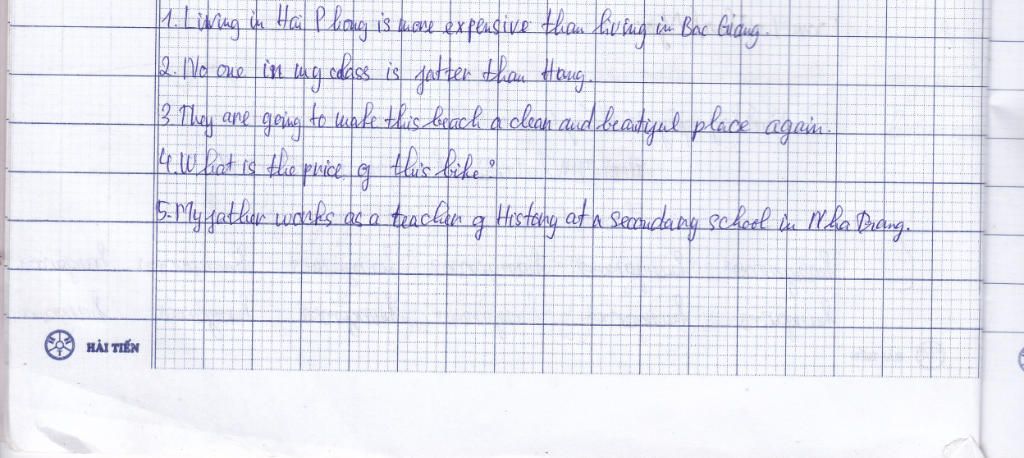 1. Living in Hai Phong is more expensive than living in Bac Giang.
2. No one in my class is fatter than Hang.
3 They are going to make this beach a clean and beautiful place again.
4. What is the price of this bike?
5. My father works as a teacher of History at a secondary school in Nha Trang.
HẢI TIẾN